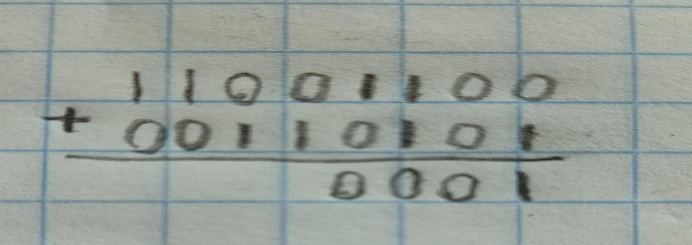 1 1 0 0 1 1 0 0
+ 0 0 1 1 0 1 0 1
0 0 0 1